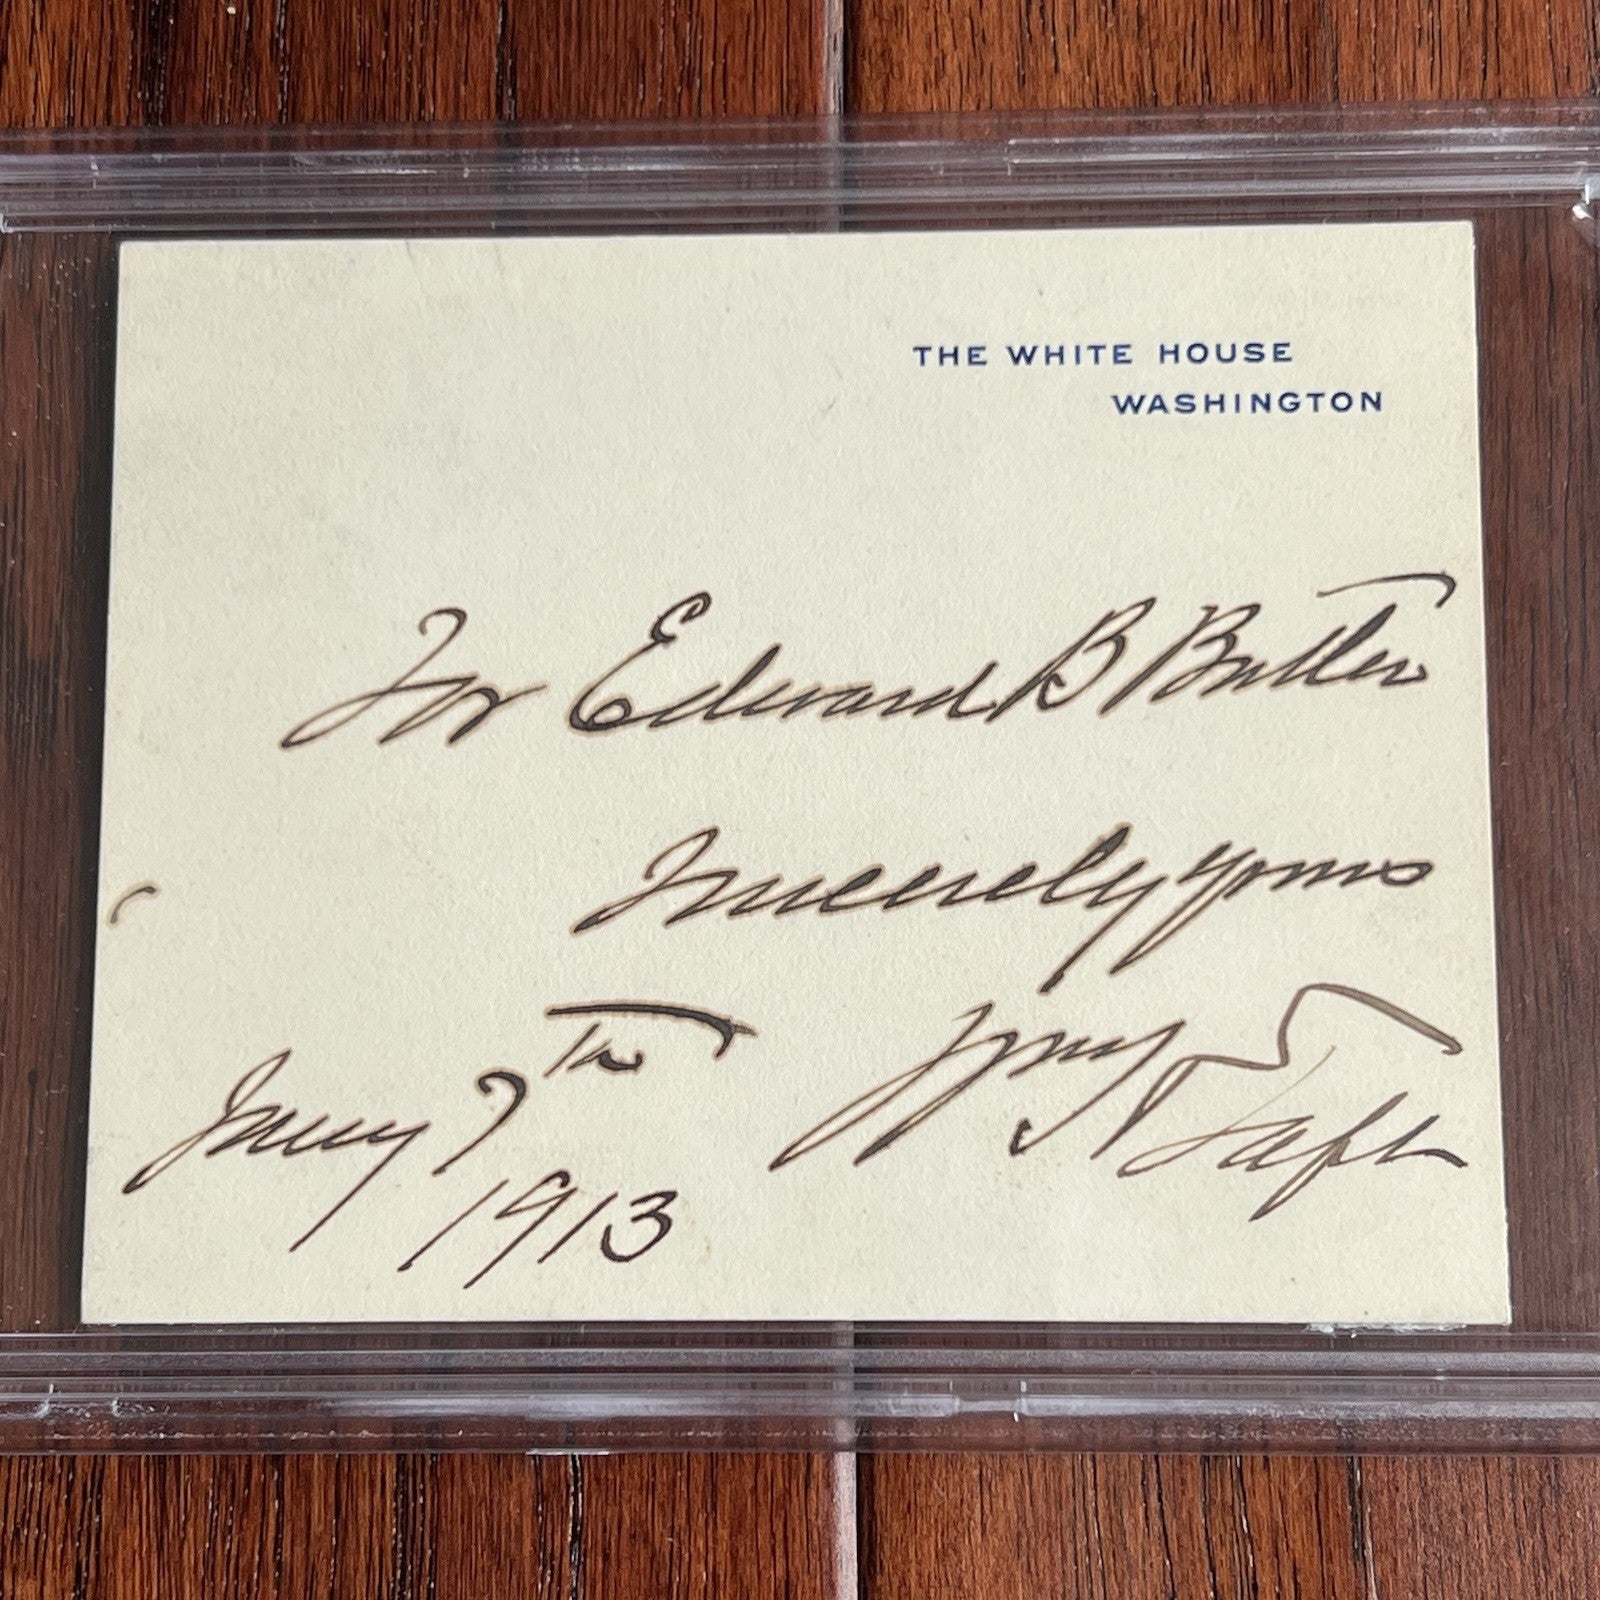 THE WHITE HOUSE
WASHINGTON
For Edward B Butler
Sincerely yours
Wm H Taft
Jany 7th
1913